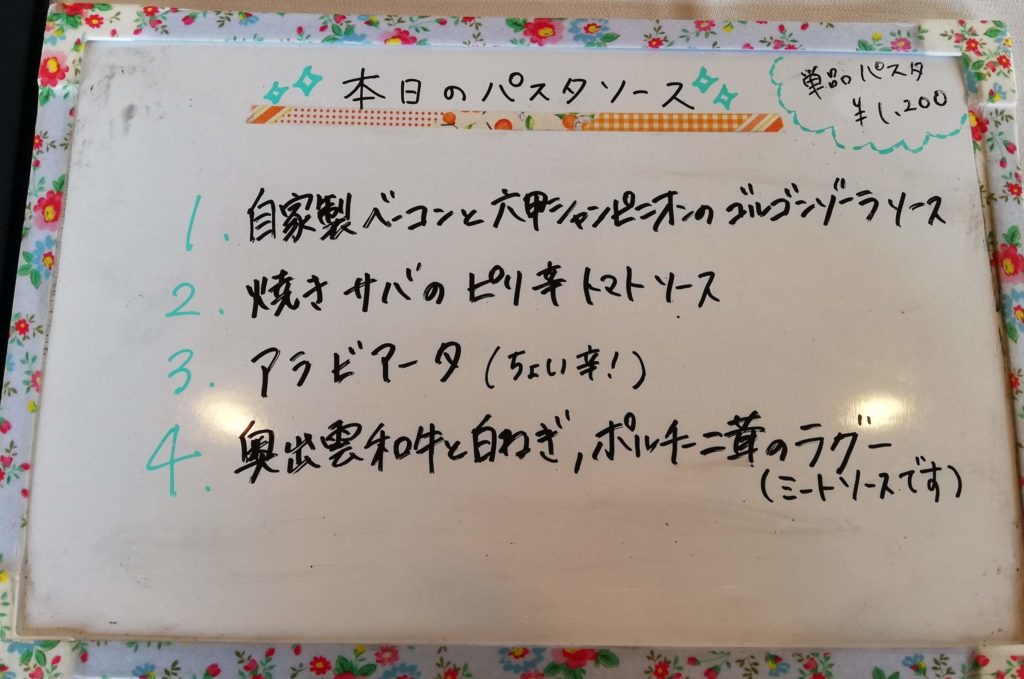 本日のパスタソース
単品パスタ
¥1,200
1. 自家製ベーコンと六甲シャンピニオンのゴルゴンゾーラソース
2. 焼きサバのピリ辛トマトソース
3. アラビアータ(ちょい辛!)
4. 奥出雲和牛と白ねぎ,ポルチーニ茸のラグー
(ミートソースです)